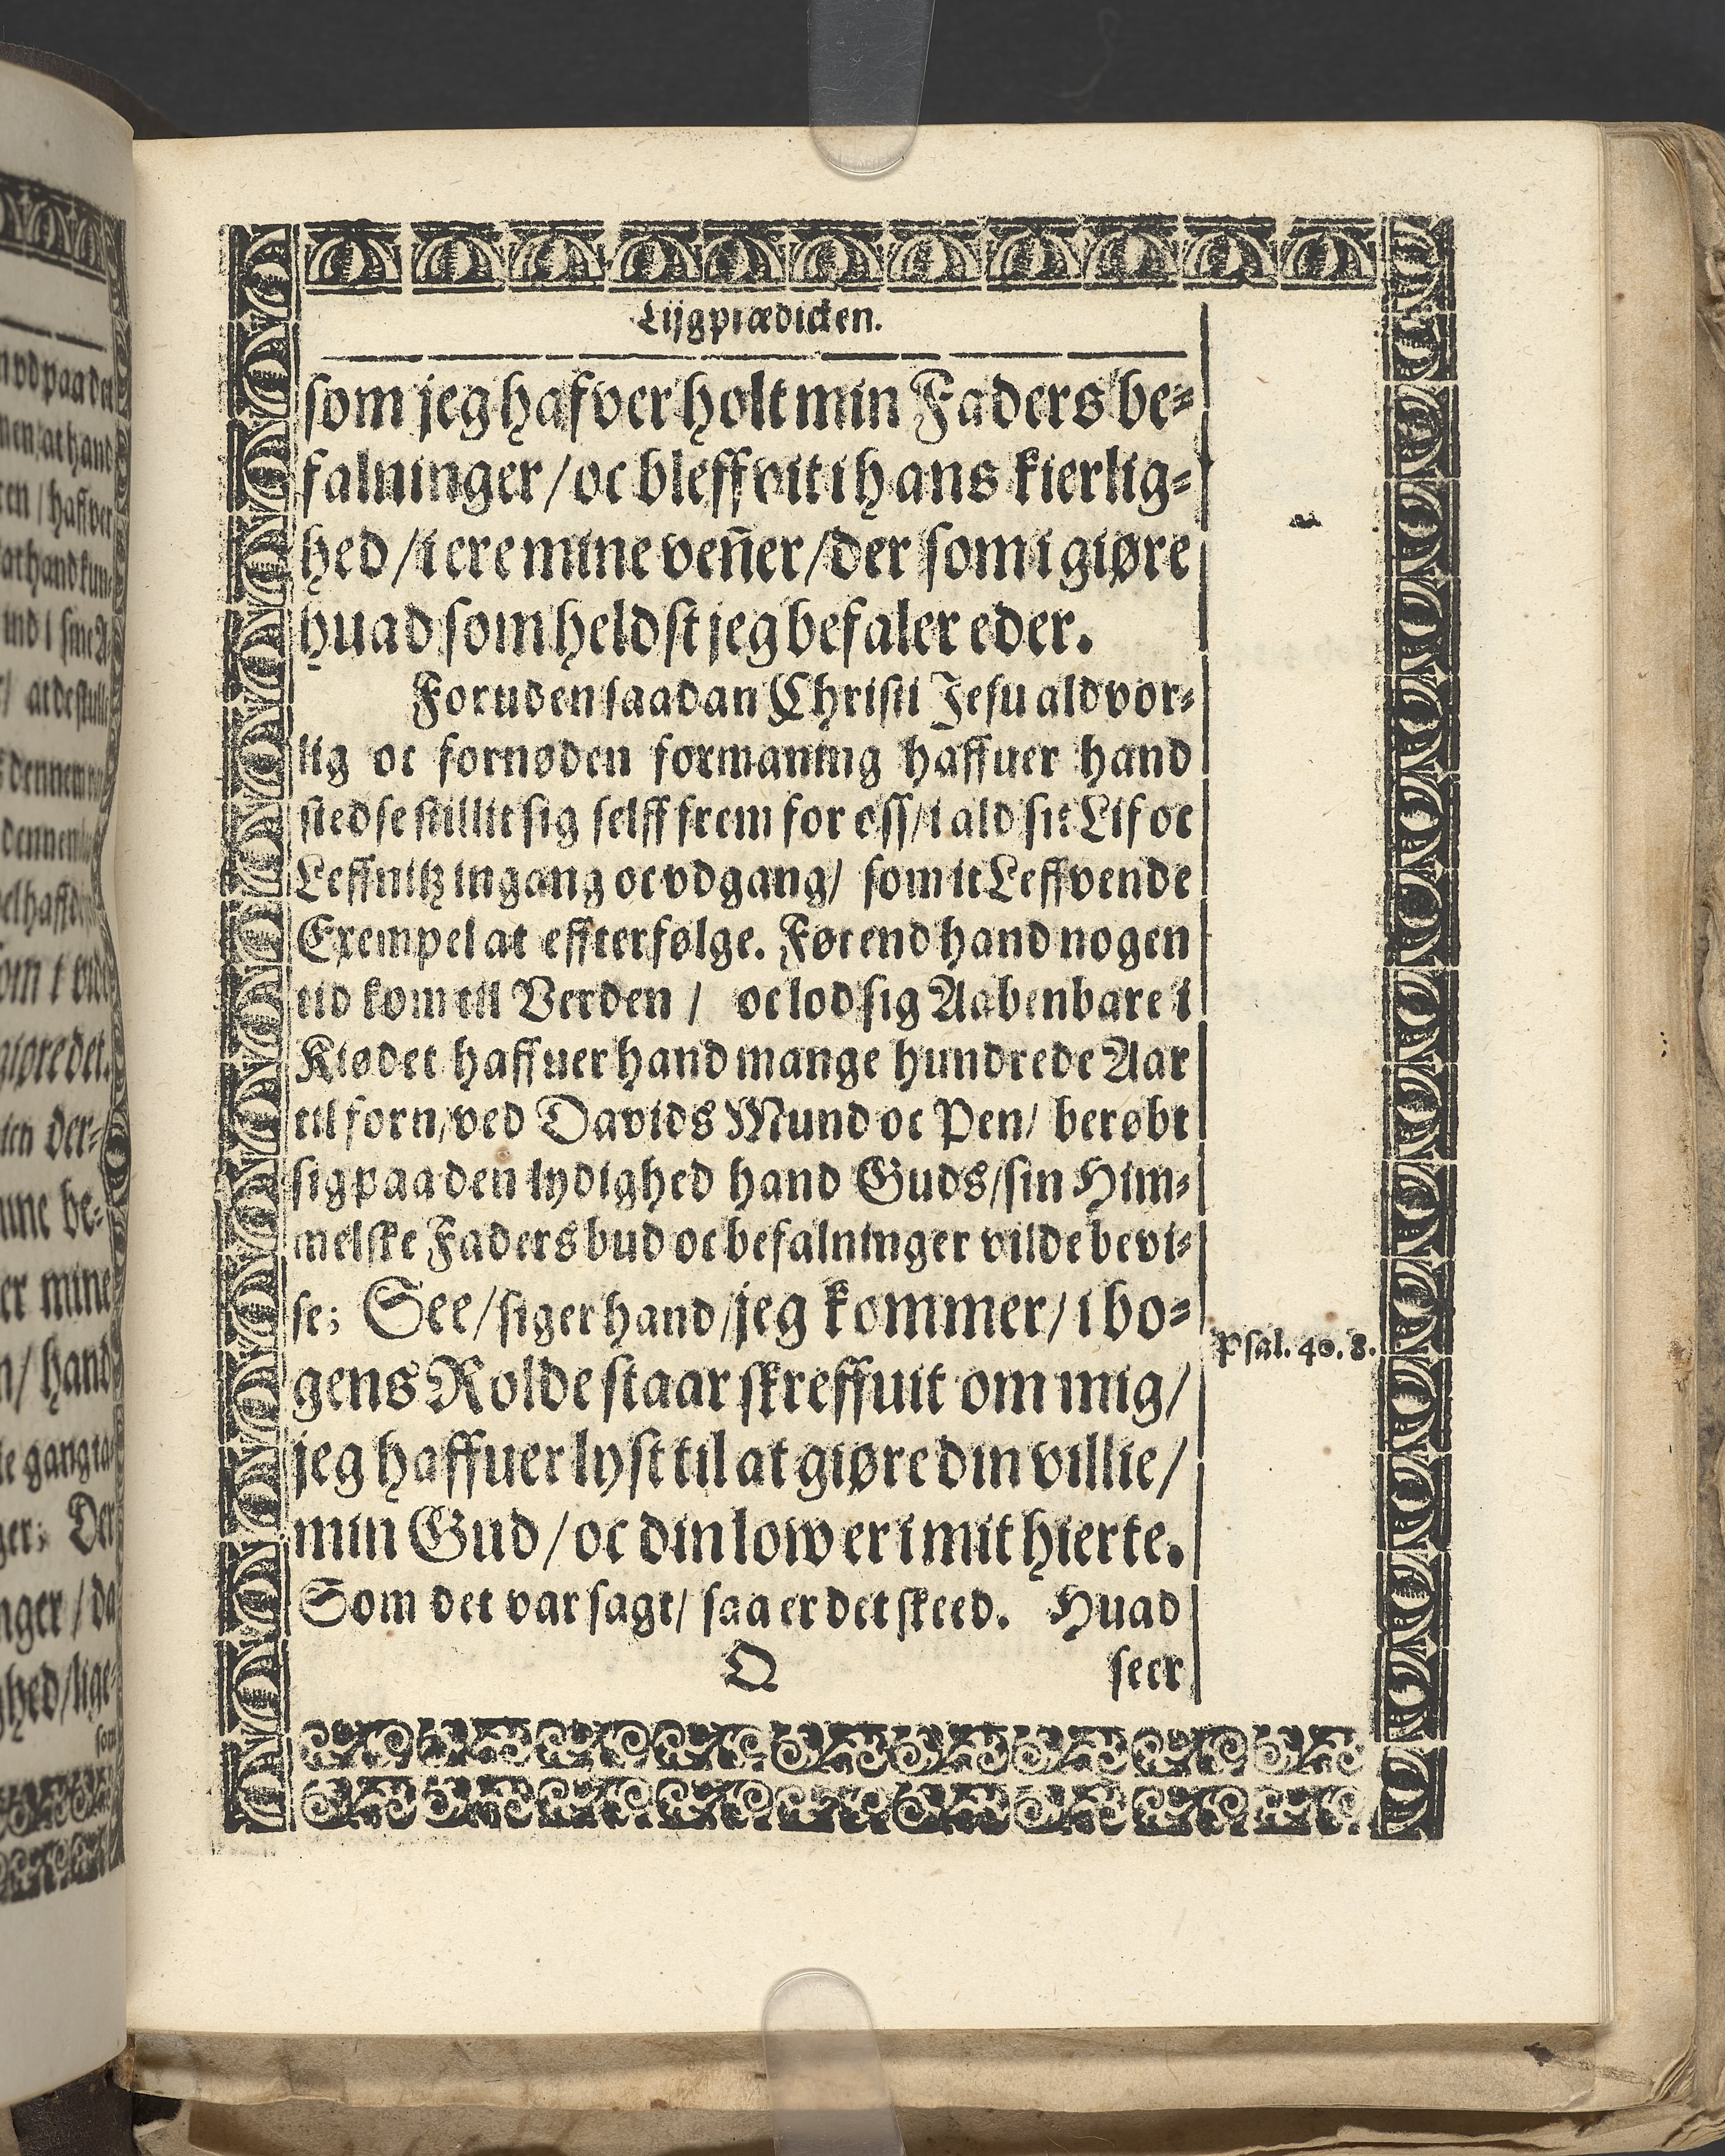 Lijgprædicken.
som jeg hafver holt min Faders be-
falninger/ oc bleffvit i hans kierlig-
hed/ i ere mine veñer/ der som i giøre
huad som heldst jeg befaler eder.
Foruden saadan Christi Jesu aldvor-
lig oc fornøden formaning haffuer hand
stedse stillit sig selff frem for oss/ i ald sit Lif oc
Leffnitz ingang oc vdgang/ som it Leffvende
Exempel at effterfølge. Førend hand nogen
tid kom till Verden/ oc lod sig Aabenbare i
Kiødet haffuer hand mange hundrede Aar
til forn/ ved Davids Mund oc Pen/ berøbt
sig paa den lydighed hand Guds/ sin Him-
melske Faders bud oc befalninger vilde bevi-
se; See/ siger hand/ jeg kommer/ i bo-
gens Rolde staar skreffuit om mig/
Psal. 40. 8.
jeg haffuer lyst til at giøre din villie/
min Gud/ oc din low er i mit hierte.
Som det var sagt/ saa er det skeed. Huad
O seer